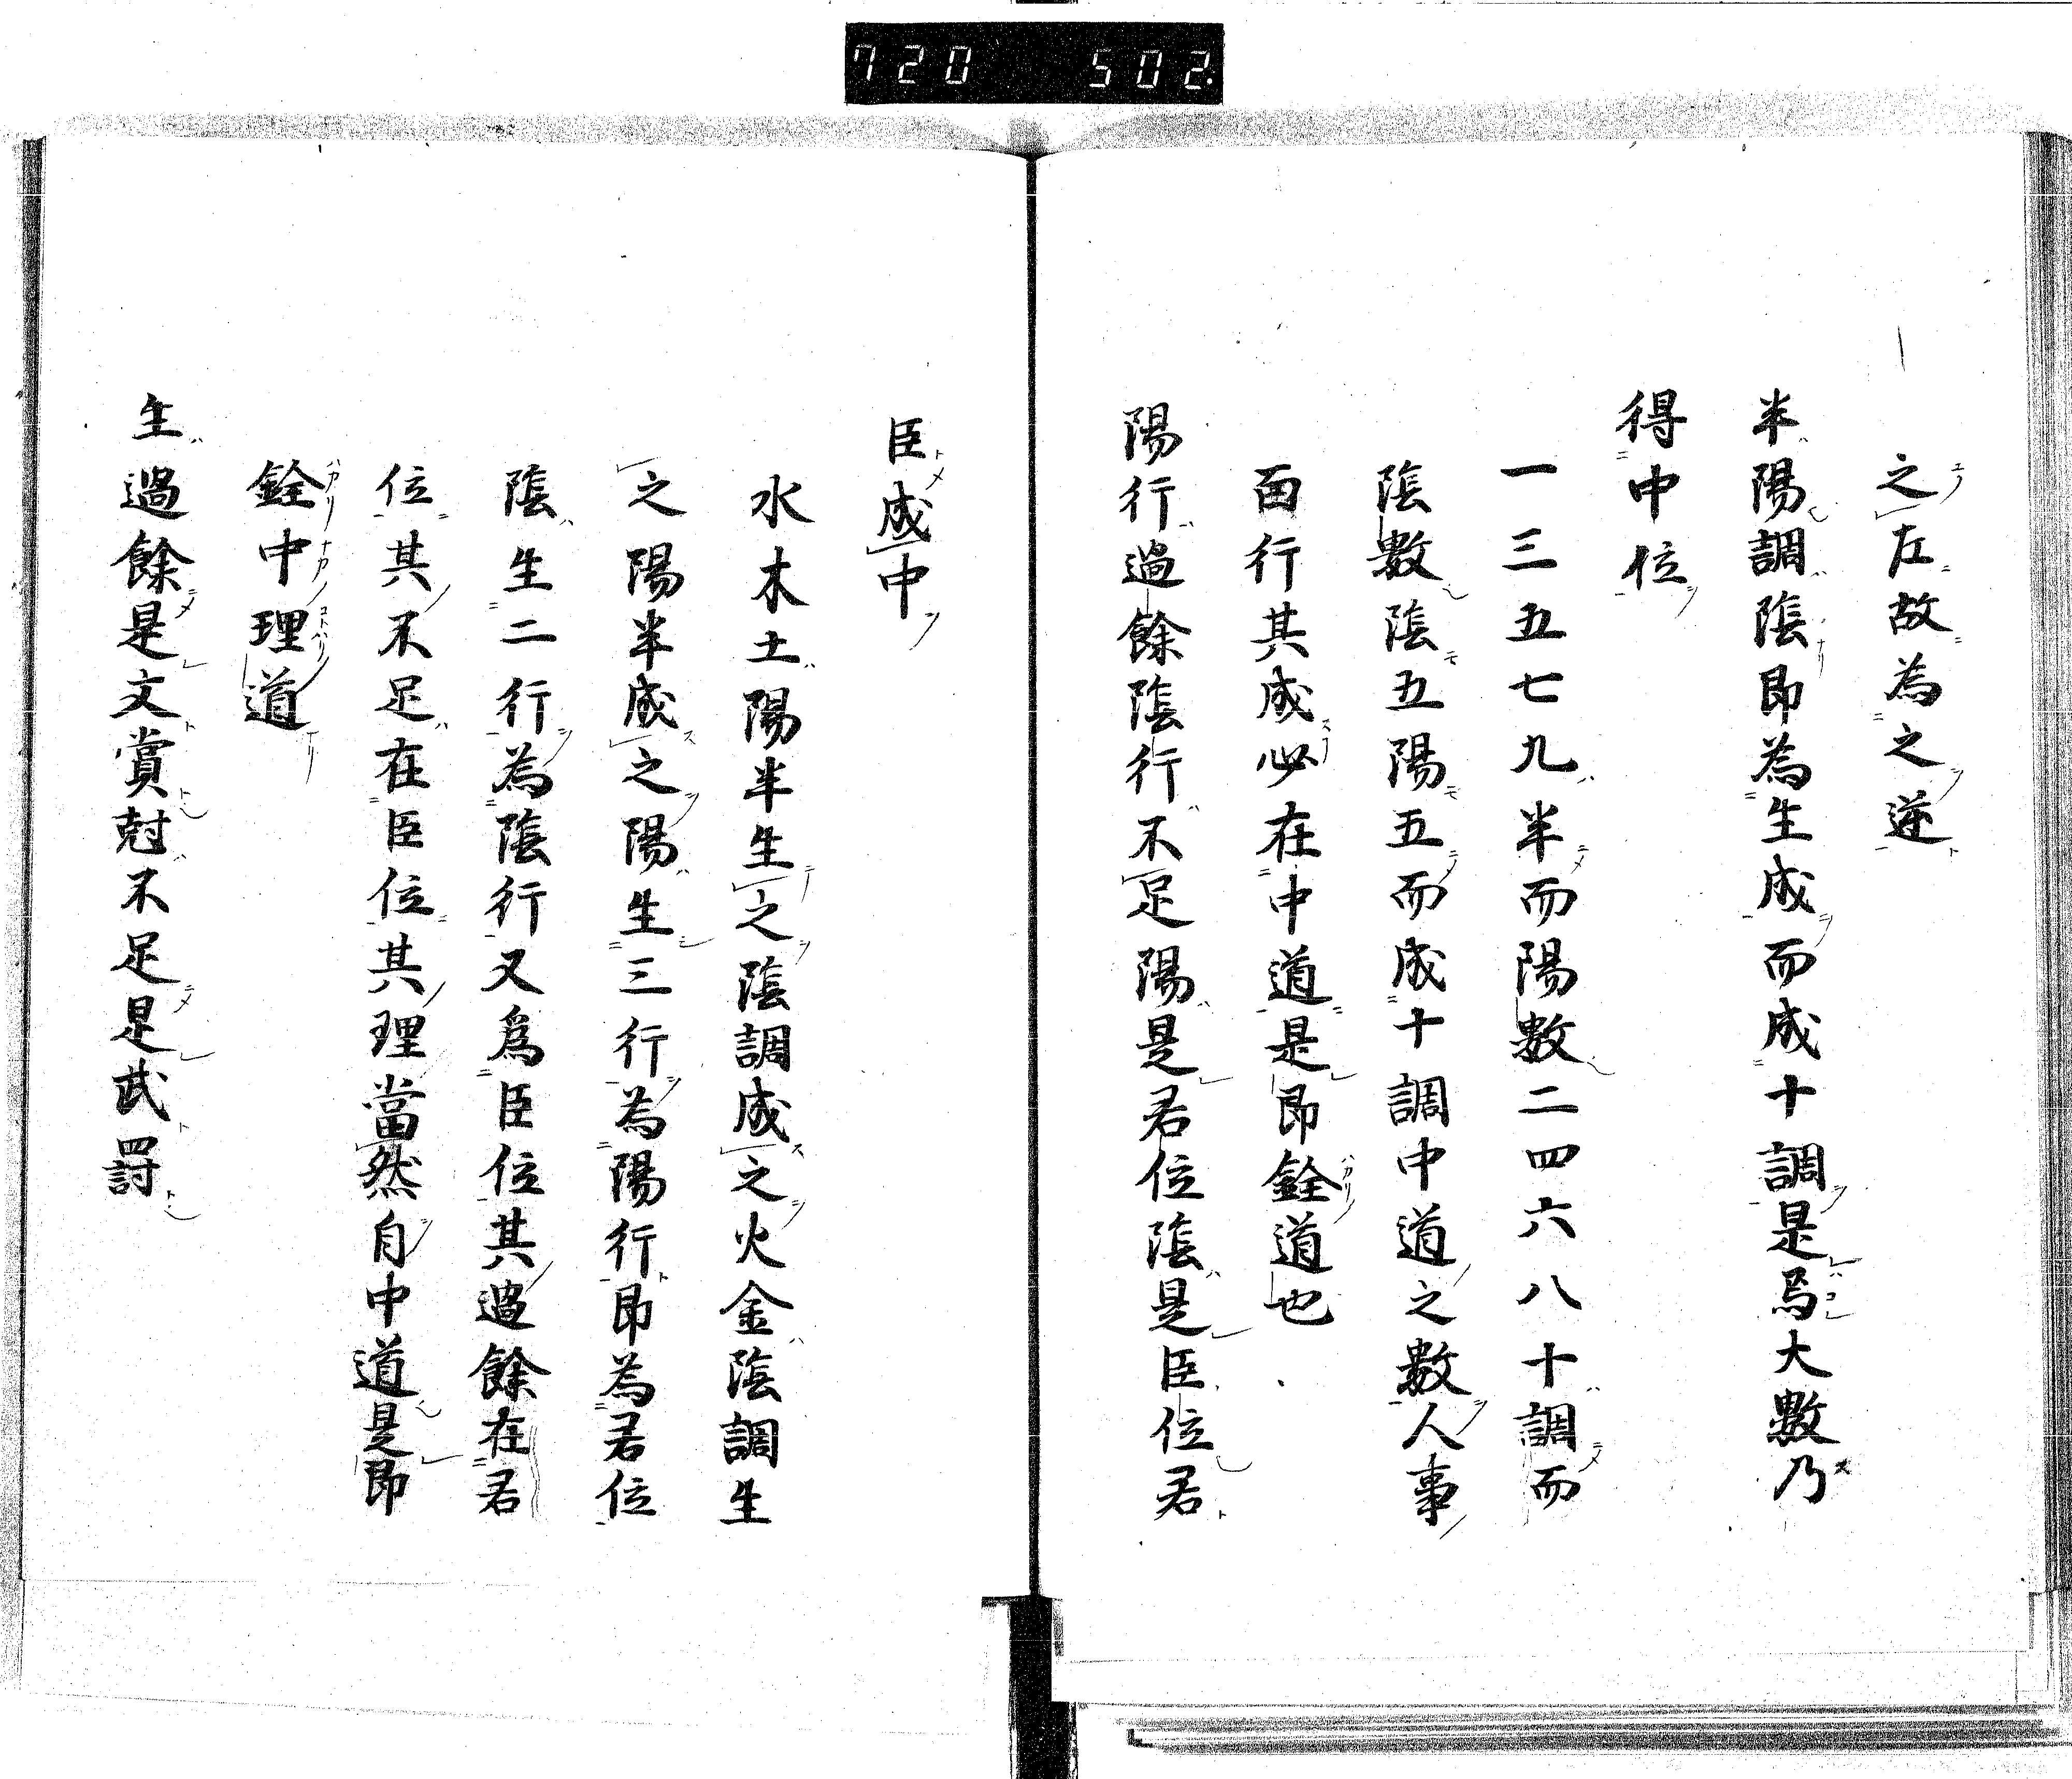 720 502.
之左故為之逆
半陽調陰即為生成而成十調是為大數乃
得中位
一三五七九半而陽數二四六八十調而
陰數陰五陽五而成十調中道之數人事
百行其成必在中道是即銓道也
陽行過餘陰行不足陽是君位陰是臣位君
臣成中
水木土陽半生之陰調成之火金陰調生
之陽半成之陽生三行為陽行即為君位
陰生二行為陰行又為臣位其過餘在君
位其不足在臣位其理當然自中道是即
銓中理道
生過餘是文賞尅不足是武罸